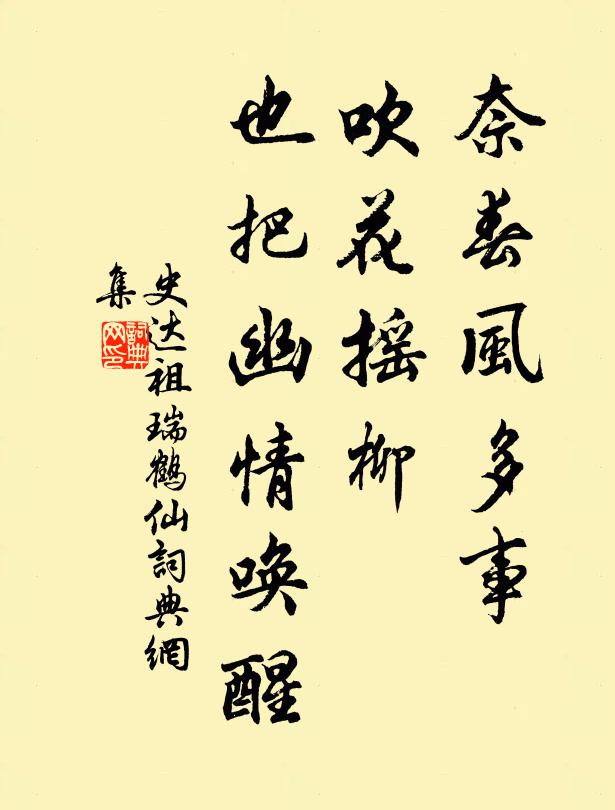 奈春風多事
吹花摇柳
也把幽情唤醒
史达祖瑞鶴仙詞典網
集
詞典
网印